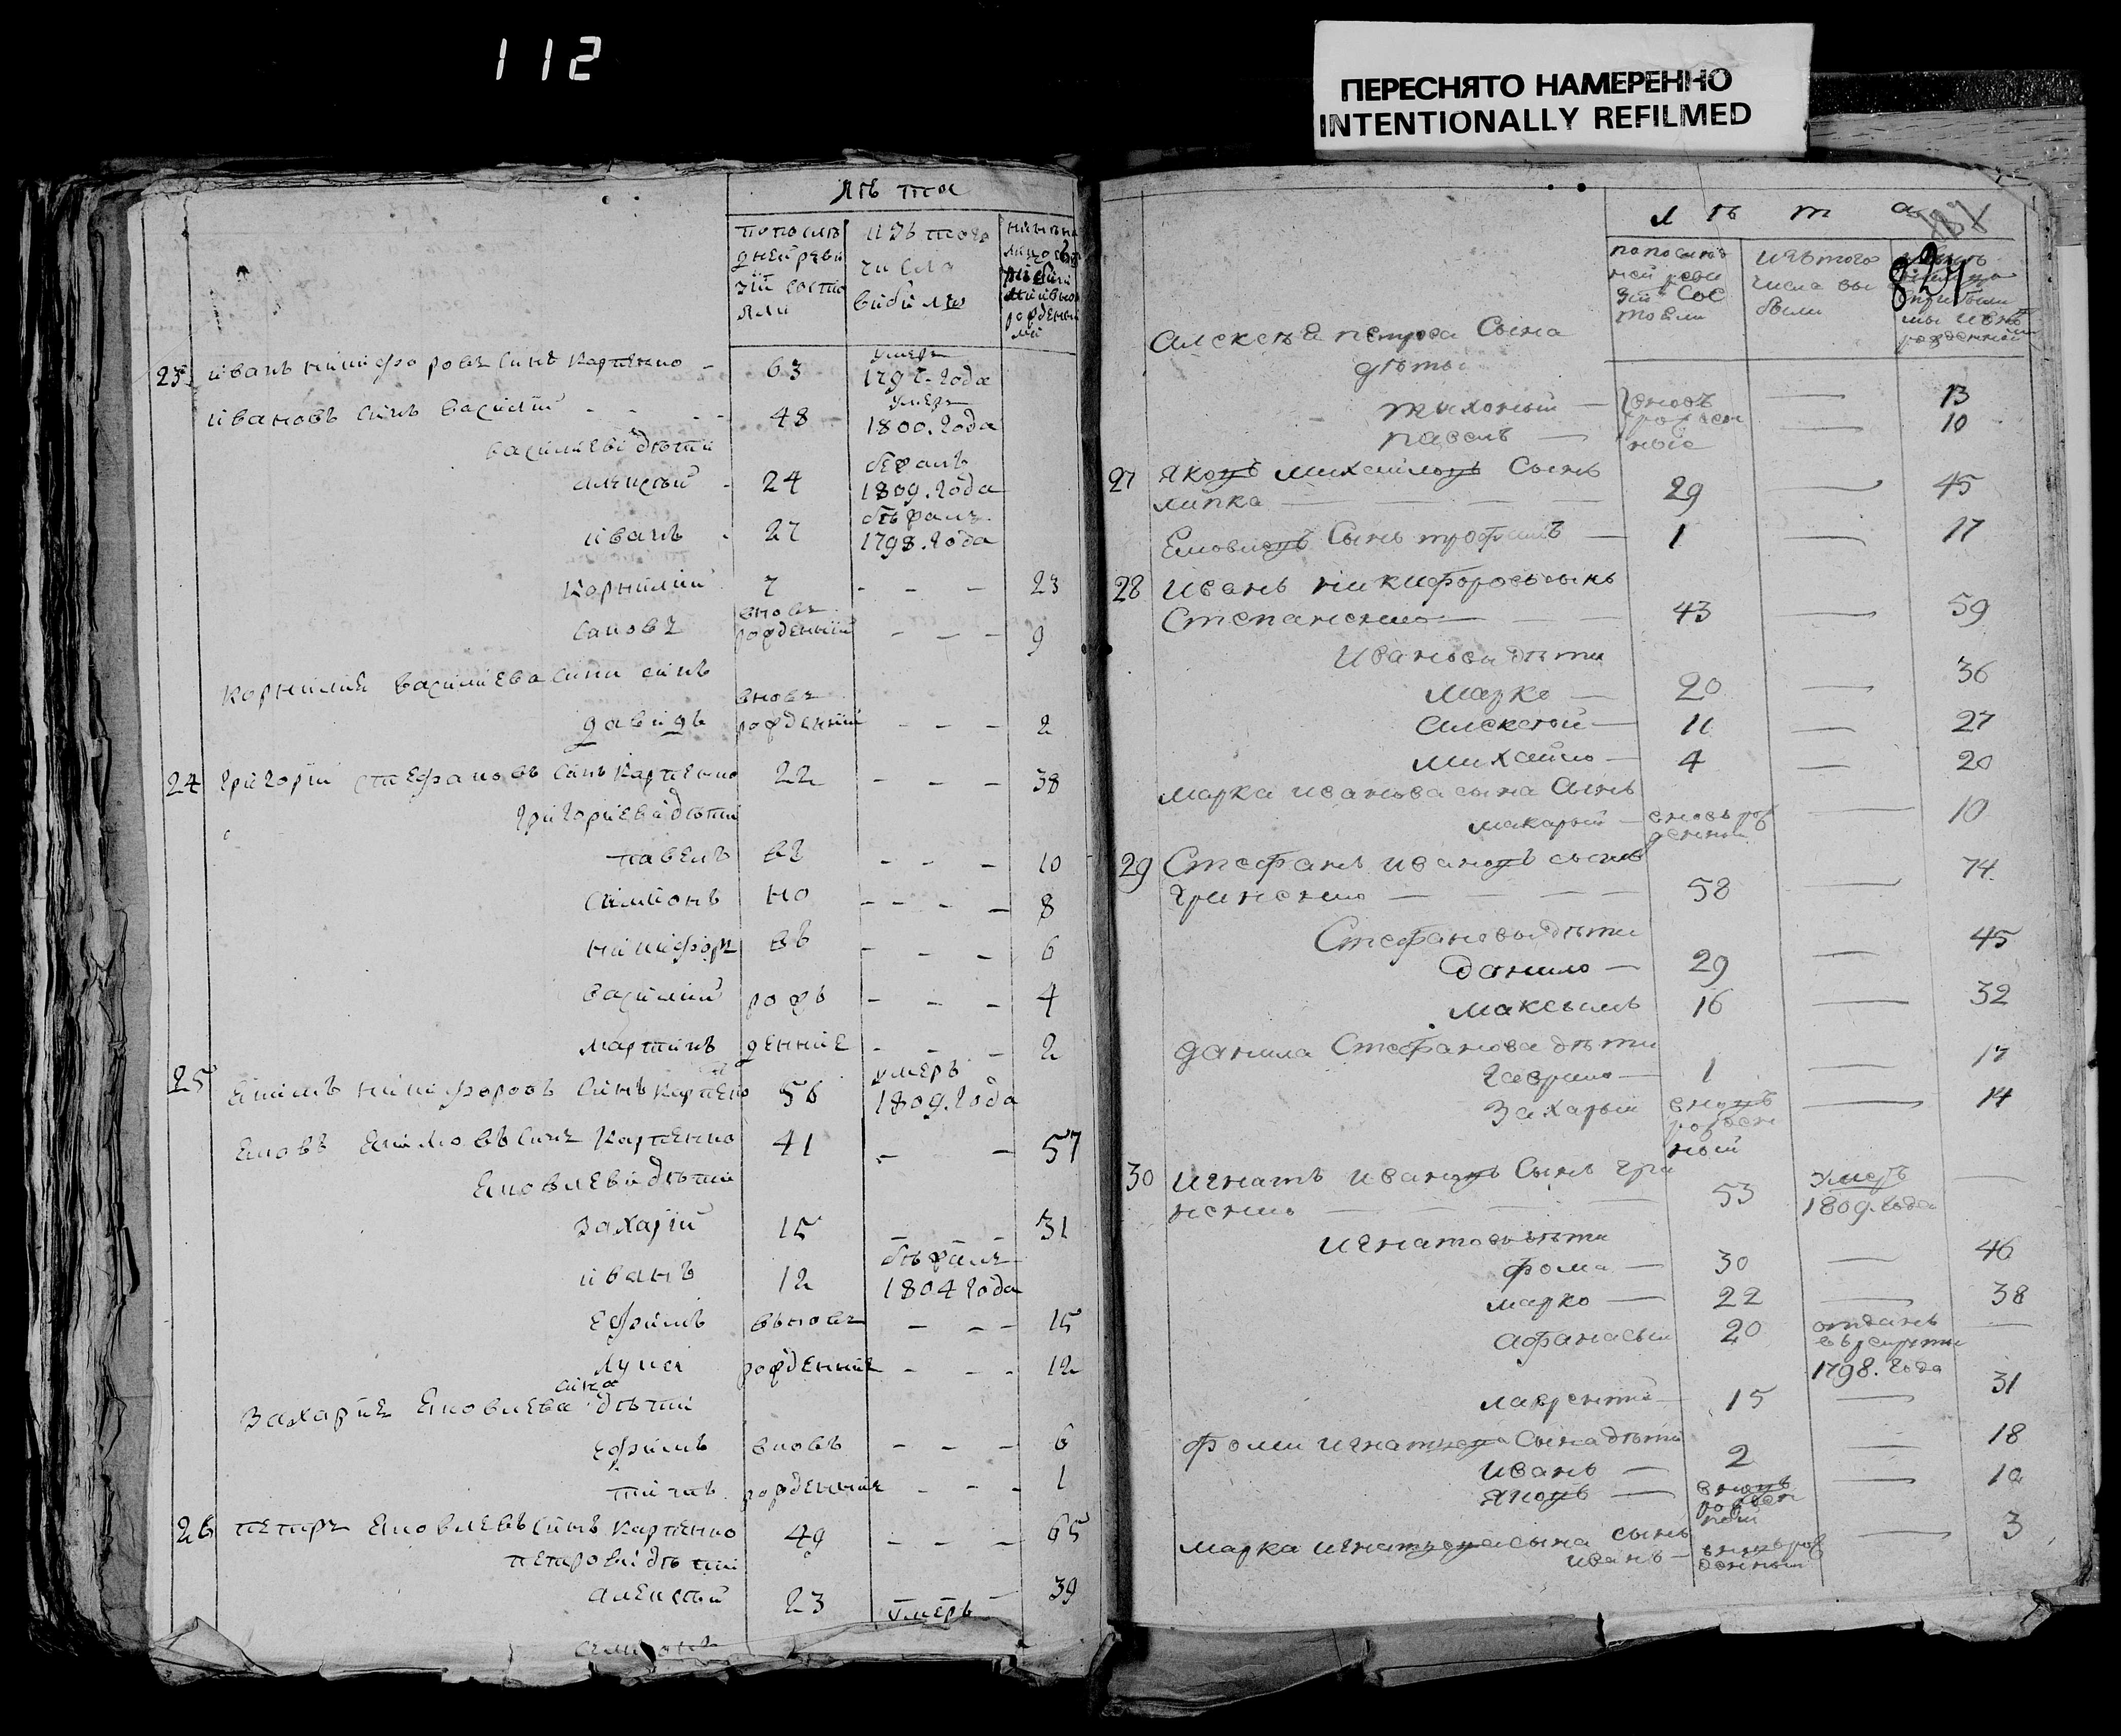 112
ПЕРЕСНЯТО НАМЕРЕННО
INTENTIONALLY REFILMED
лѣта
попослѣ
дней реви
зіи состо
яли
изъ того
числа
вибило
23 иванъ никифоровъ синъ карпенко 63 умеръ 1797. года
ивановъ синъ василий 48 умеръ 1800. года
василиеви дѣти
алексѣй 24 бежалъ 1809. года
иванъ 27 бѣжалъ 1798. года
корнилий 7 - - - 23
вновъ рожденний - - - 9
корнилия василиева сина синъ
давидъ вновъ рожденний - - - 2
24 григорій стефановъ синъ карпенко 22 - - - 38
григориеви дѣти
павелъ въ - - - 10
симионъ но - - - 8
никифоръ въ - - - 6
василий рож - - - 4
мартинъ денние - - - 2
25 екимъ никифоровъ синъ карпенко 56 умеръ 1809. года
яковъ екимовъ синъ карпенко 41 - - 57
яковлеви дѣти
захарій 15 - - - 31
иванъ 12 бѣжалъ 1804 года
ефимъ вьновъ - - - 15
лука рожденние - - - 12
захария яковлева сина дѣти
ефимъ вновъ - - - 6
титъ рожденние - - - 1
26 петръ яковлевъ синъ карпенко 49 - - - 65
петрови дѣти
алексѣй 23 умеръ 39
симионъ
л ѣ т а
824
попослѣд
ней реви
зіи сос
тояли
изътого
числа вы
были
Алексѣя петрова Сына
дѣты
тихоный — вновъ рожден ные — 13
павелъ — 10
27 Яковъ михайловъ Сынъ
липка — 29 — 45
Яковлевъ Сынъ трофимъ — 1 — 17
28 Иванъ никифоровъ сынъ
Степаненко — 43 — 59
Ивановы дѣти
марко — 20 — 36
алексѣй — 11 — 27
михайло — 4 — 20
марка иванова сына Сынъ
макарый — вновь рож денный — 10
29 Стефанъ ивановъ сынъ
гриненко — 58 — 74
Стефановы дѣти
данило — 29 — 45
максымъ 16 — 32
данила Стефанова дѣти
гаврило — 1 — 17
Захарый вновъ рожден ный — 14
30 игнатъ ивановъ Сынъ гри
ненко — 53 умеръ 1809. года —
игнатовы дѣти
фома — 30 — 46
марко — 22 — 38
афанасый 20 отданъ въ рекруты 1798. года —
лаврентий — 15 — 31
фоми игнатова Сына дѣти
иванъ — 2 — 18
яковъ — вновъ рожден ный — 12
марка игнатова сына сынъ
иванъ — вновъ рож денный — 3